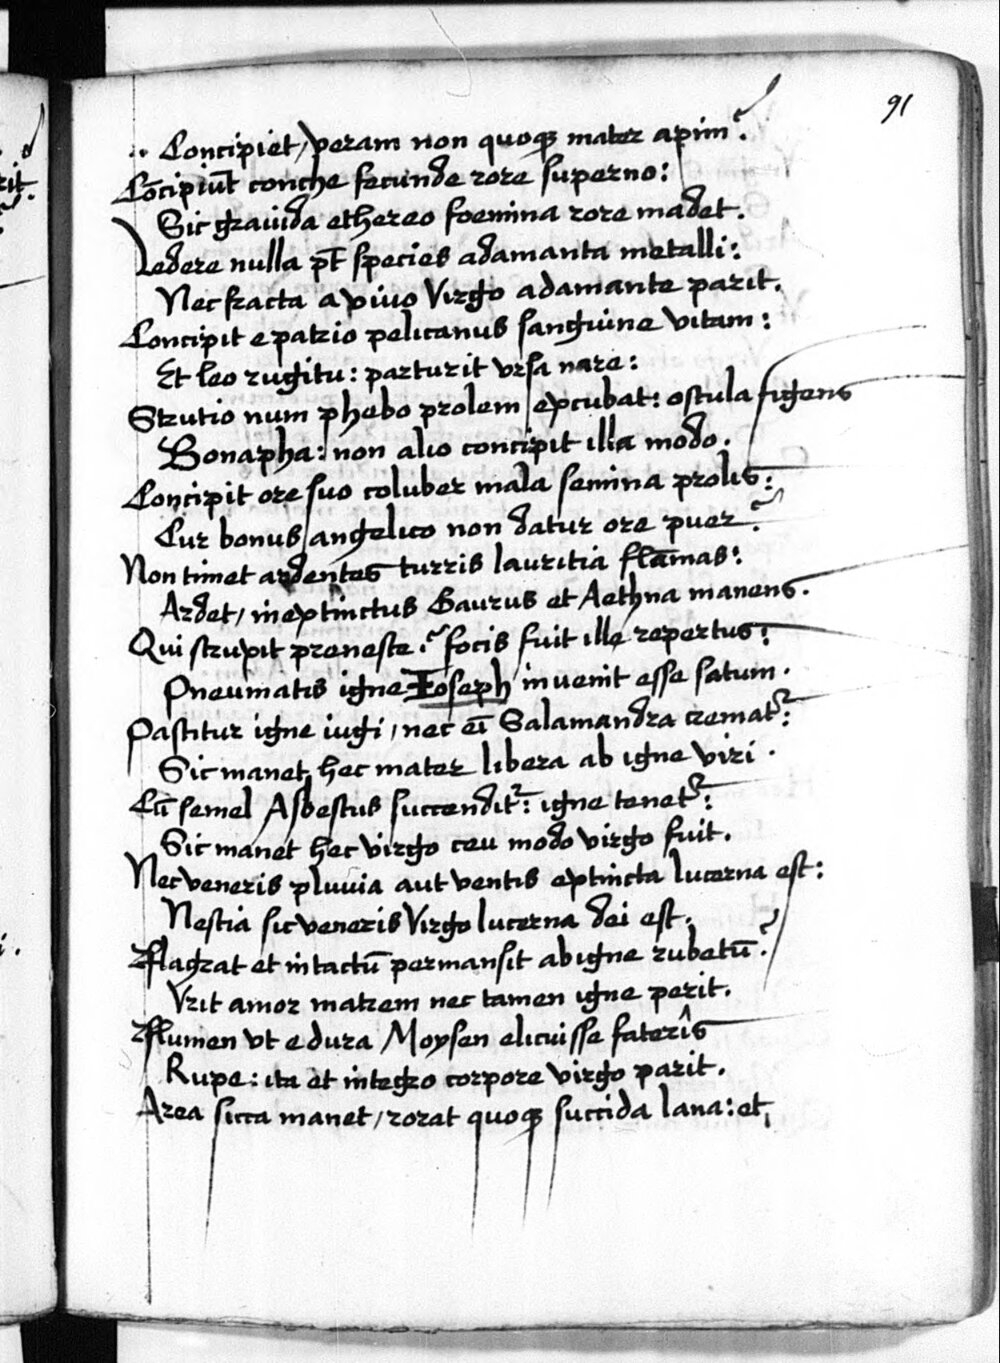 91
Concipiet, veram non quoqꝫ mater apim?
Cōcipiūt conche fecunde rore superno:
Sic gravida ethereo foemina rore madet.
Ledere nulla pt̄ species adamanta metalli:
Nec fracta a viuo Virgo adamante parit.
Concipit e patrio pelicanus sanguine vitam:
Et leo rugitu: parturit vrsa nare:
Strutio num phebo prolem excubat: oscula figens
Bonapha: non alio concipit illa modo.
Concipit ore suo coluber mala semina prolis:
Cur bonus angelico non datur ore puer?
Non timet ardentes turris lauritia flāmas:
Ardet, inextinctus Gaurus et Aethna manens.
Qui struxit preneste? focis fuit ille repertus:
Pneumatis igne Ioseph invenit esse satum.
Pascitur igne iugi, nec eī Salamandra crematᷣ:
Sic manet hec mater libera ab igne viri.
Cū semel Asbestus succenditᷣ: igne tenetᷣ:
Sic manet hec virgo ceu modo virgo fuit.
Nec veneris pluvia aut ventis extincta lucerna est:
Nescia sic veneris Virgo lucerna dei est.
Flagrat et intactū permansit ab igne rubetū?
Vrit amor matrem nec tamen igne perit.
Flumen vt e dura Moysen elicuisse faterîs
Rupe: ita et integro corpore virgo parit.
Area sicca manet, rorat quoqꝫ succida lana: et,